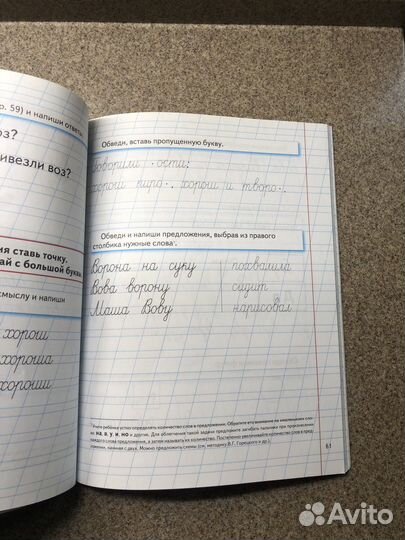 р. 59) и напиши ответы
оз?
ривезли воз?
ия ставь точку.
ай с большой буквы
смыслу и напиши
хорош
хороша
хороши
Обведи, вставь пропущенную букву.
Говорили . ости:
хорош пиро., хорош и творо.
Обведи и напиши предложения, выбрав из правого
столбика нужные слова¹.
Ворона на суку похвалила
Вова ворону сидит
Маша Вову нарисовал
¹ Учите ребёнка устно определять количество слов в предложении. Обратите его внимание на
на, в, у, и, но и другие. Для облегчения такой задачи предложите загибать пальчики при произнесении
каждого слова предложения, а затем называть их количество. Постепенно увеличивайте количество слов в пред-
ложении, начиная с двух. Можно предложить схемы (см. методику В.Г. Горецкого и др.).
61
Avito